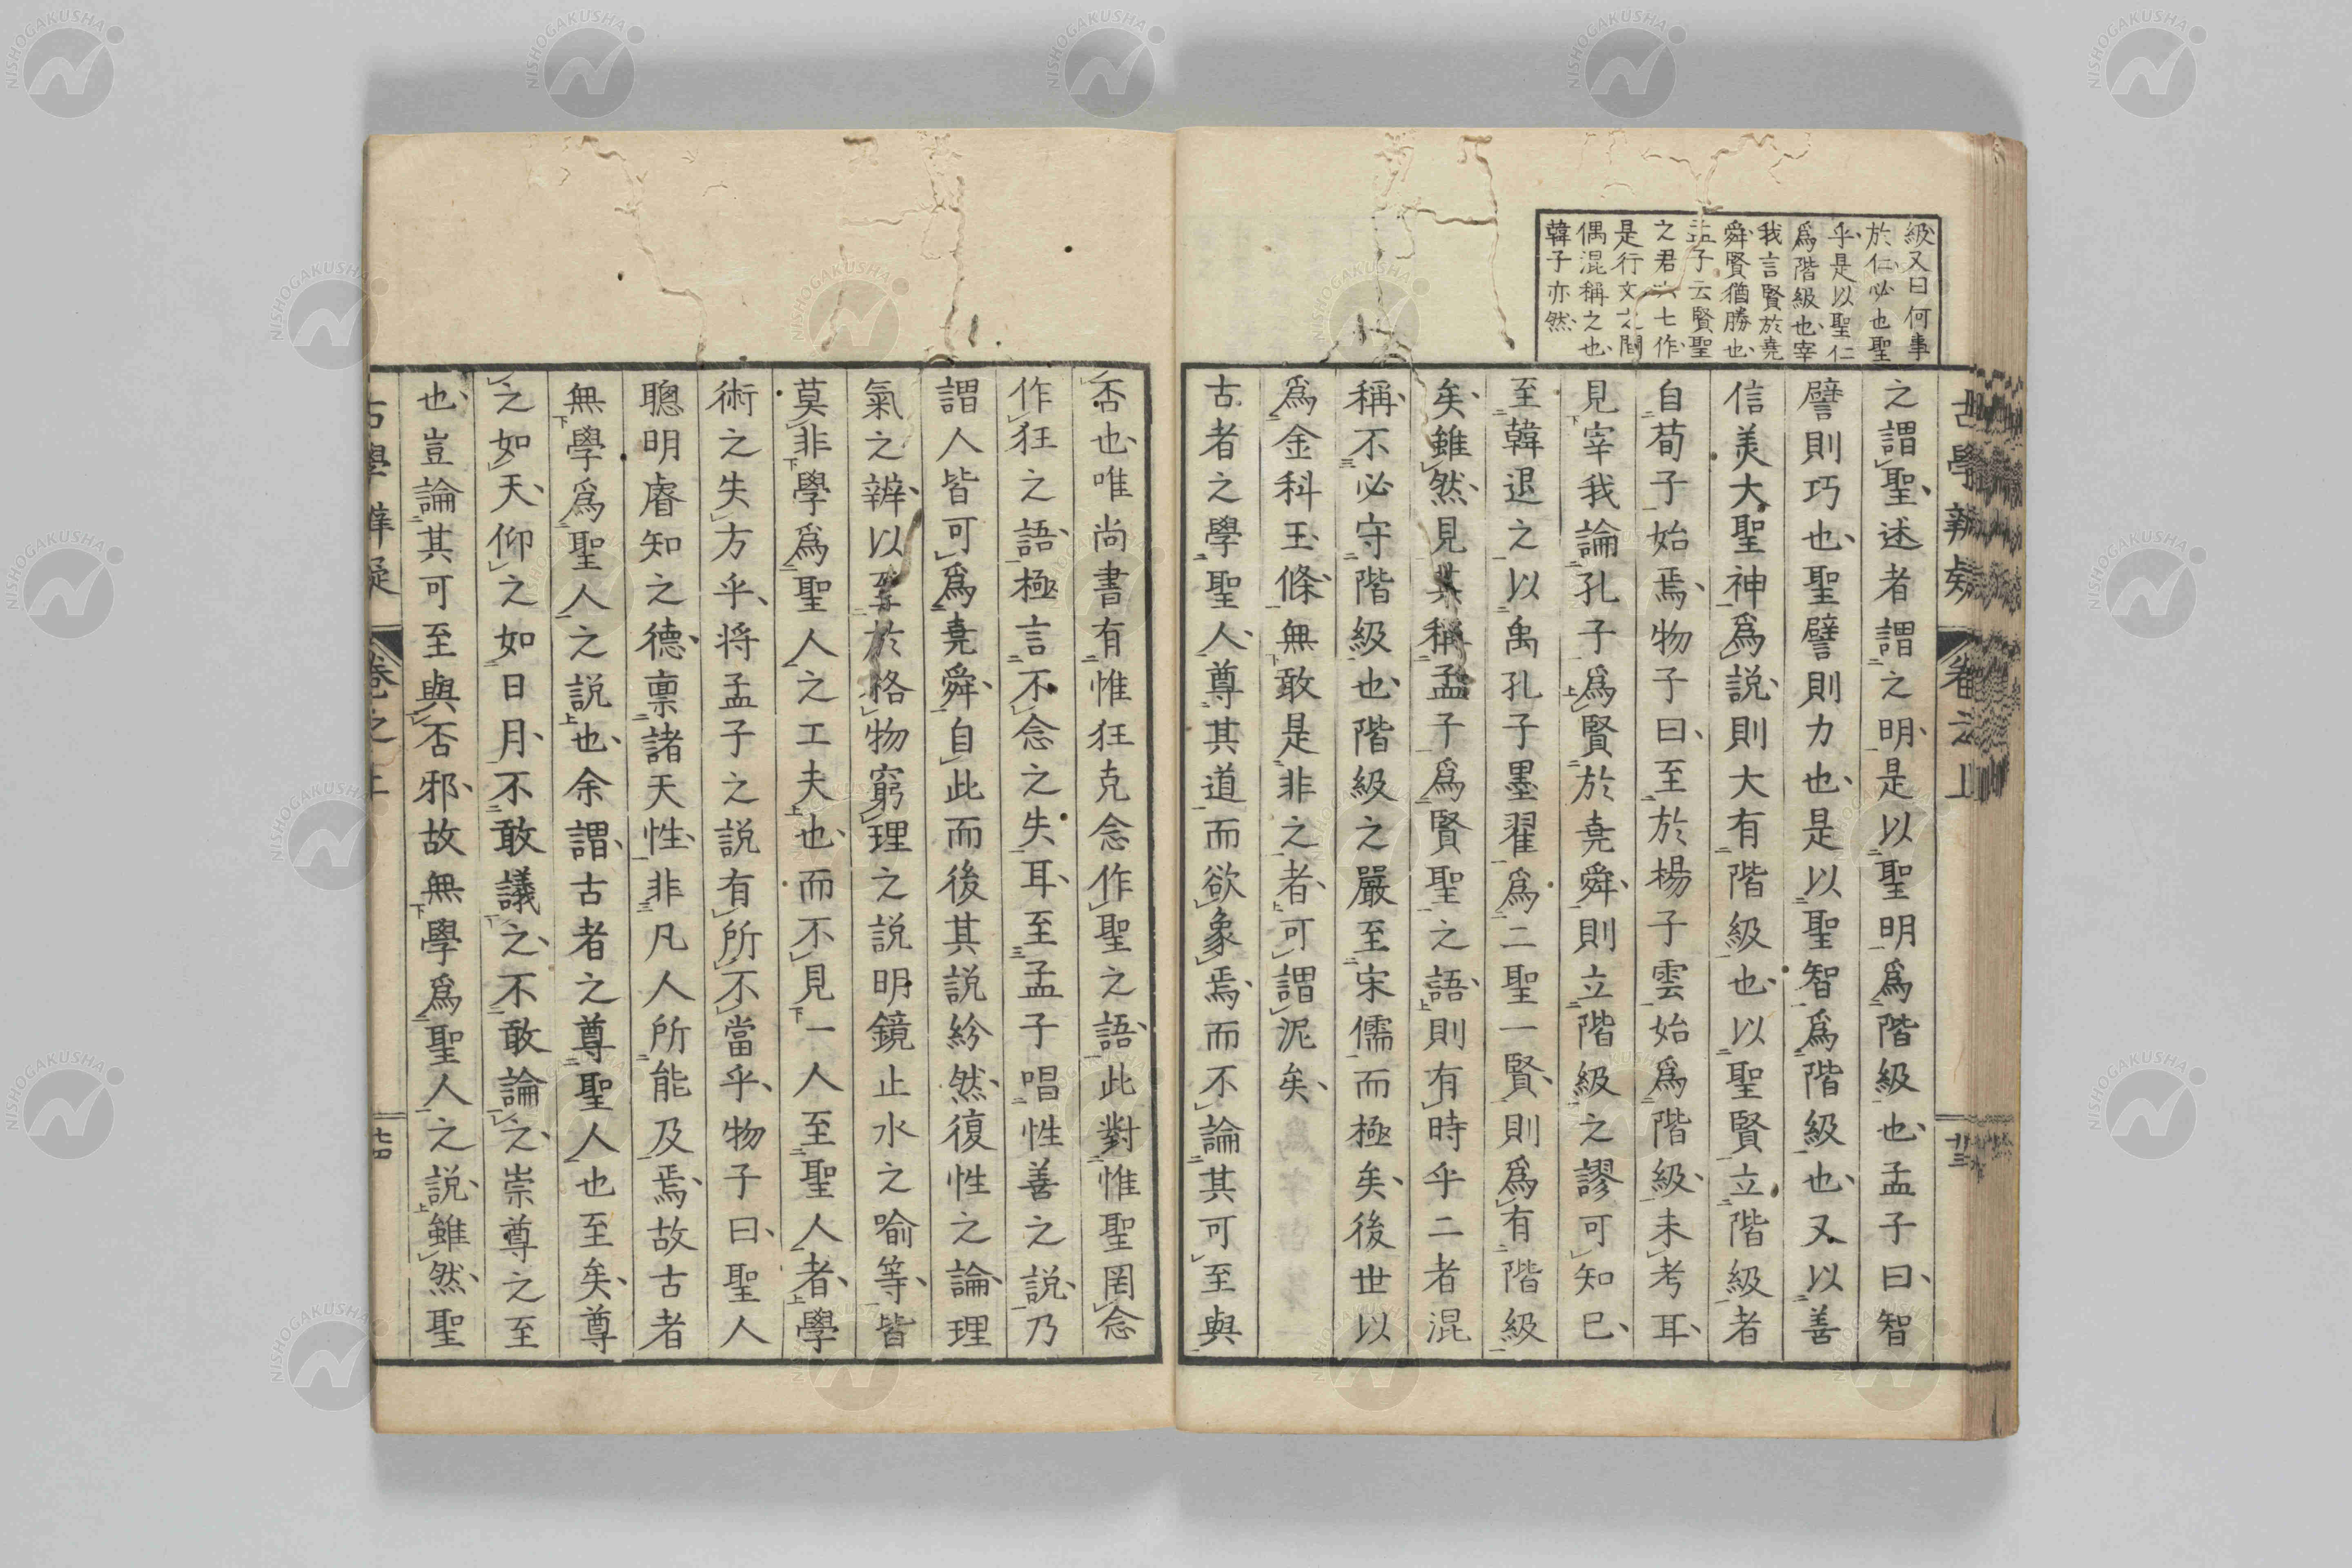 級又曰何事
於仁必也聖
乎是以聖仁
爲階級也宰
我言賢於堯
舜賢猶勝也
孟子云賢聖
之君六七作
是行文之間
偶混稱之也
韓子亦然
古學辨疑 卷之上 廿三
之謂聖述者謂之明是以聖明爲階級也孟子曰智
譬則巧也聖譬則力也是以聖智爲階級也又以善
信美大聖神爲說則大有階級也以聖賢立階級者
自荀子始焉物子曰至於楊子雲始爲階級未考耳
見宰我論孔子爲賢於堯舜則立階級之謬可知已
至韓退之以禹孔子墨翟爲二聖一賢則爲有階級
矣雖然見其稱孟子爲賢聖之語則有時乎二者混
稱不必守階級也階級之嚴至宋儒而極矣後世以
爲金科玉條無敢是非之者可謂泥矣
古者之學聖人尊其道而欲象焉而不論其可至與
否也唯尚書有惟狂克念作聖之語此對惟聖罔念
作狂之語極言不念之失耳至孟子唱性善之說乃
謂人皆可爲堯舜自此而後其說紛然復性之論理
氣之辨以至於格物窮理之說明鏡止水之喻等皆
莫非學爲聖人之工夫也而不見一人至聖人者學
術之失方乎將孟子之說有所不當乎物子曰聖人
聰明睿知之德禀諸天性非凡人所能及焉故古者
無學爲聖人之說也余謂古者之尊聖人也至矣尊
之如天仰之如日月不敢議之不敢論之崇尊之至
也豈論其可至與否邪故無學爲聖人之說雖然聖
古學辨疑 卷之上 廿四
NISHOGAKUSHA